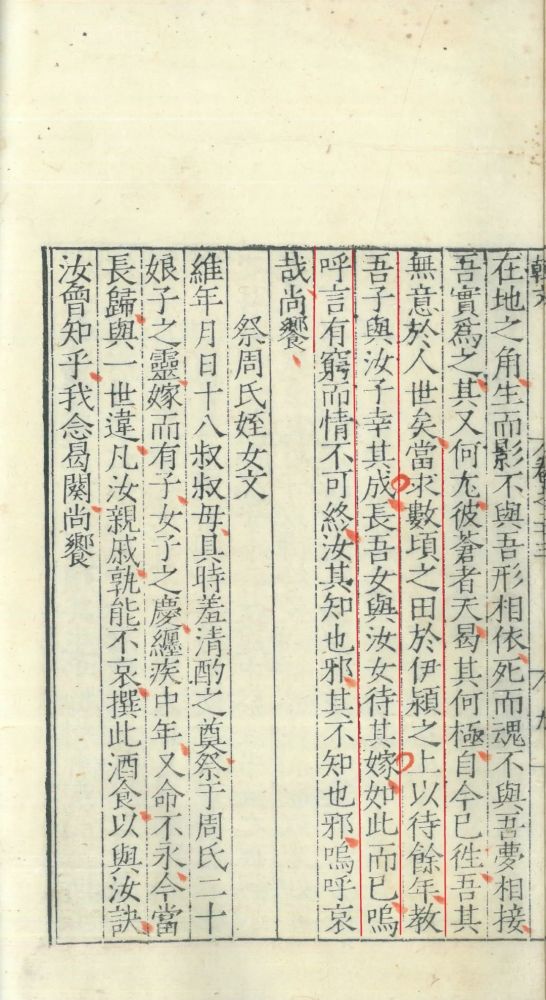 韓文 卷之廿三 九
在地之角生而影不與吾形相依死而魂不與吾夢相接
吾實爲之其又何尤彼蒼者天曷其何極自今已徃吾其
無意於人世矣當求數頃之田於伊潁之上以待餘年教
吾子與汝子幸其成長吾女與汝女待其嫁如此而已嗚
呼言有窮而情不可終汝其知也邪其不知也邪嗚呼哀
哉尚饗
祭周氏姪女文
維年月日十八叔叔母具時羞清酌之奠祭于周氏二十
娘子之靈嫁而有子女子之慶纏疾中年又命不永今當
長歸與一世違凡汝親戚孰能不哀撰此酒食以與汝訣
汝曾知乎我念曷闋尚饗